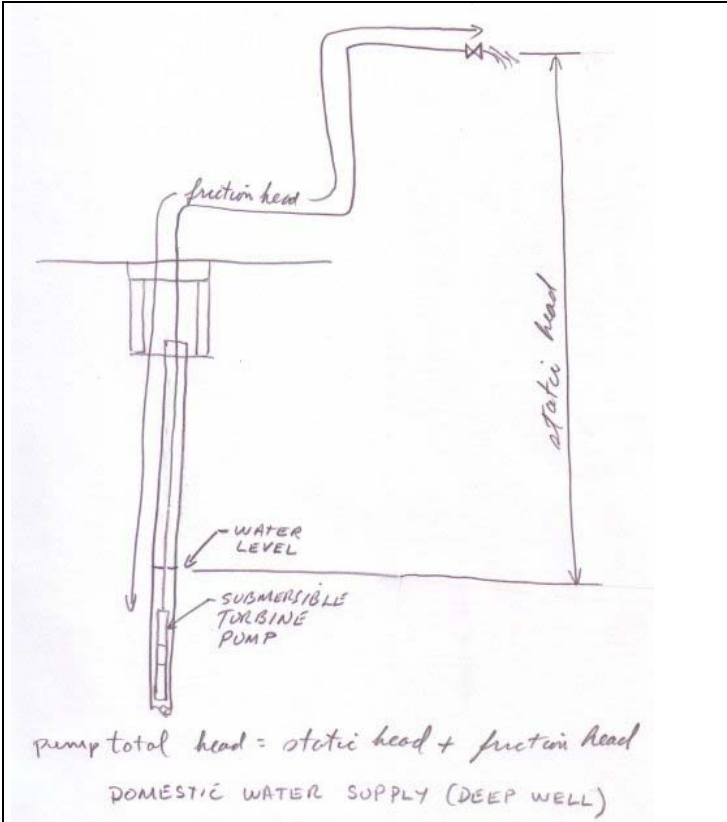 friction head
static head
WATER
LEVEL
SUBMERSIBLE
TURBINE
PUMP
pump total head = static head + friction head
DOMESTIC WATER SUPPLY (DEEP WELL)